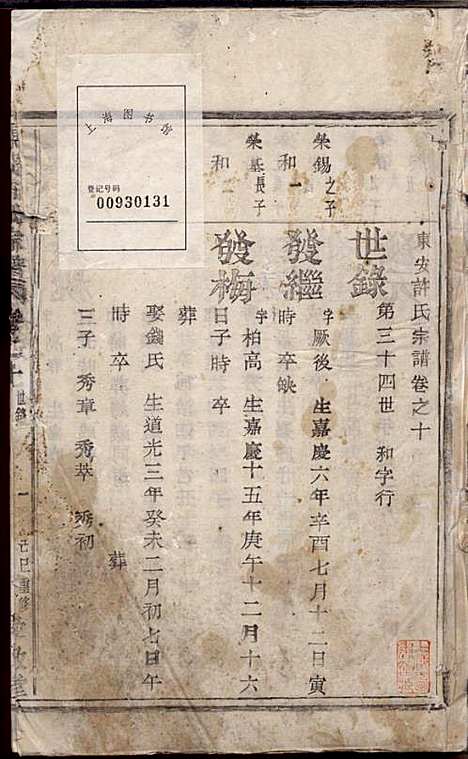 上海图书馆
登记号码
00930131
東安許氏宗譜卷之十
世錄
第三十四世 和字行
榮錫之子
和一
發繼
字厥後 生嘉慶六年辛酉七月十二日寅
時卒缺
榮基長子
和二
發梅
字柏高 生嘉慶十五年庚午十二月十六
日子時卒
葬
娶錢氏 生道光三年癸未二月初七日午
時卒 葬
三子 秀章 秀萃 秀初
世錄
一
己巳重修